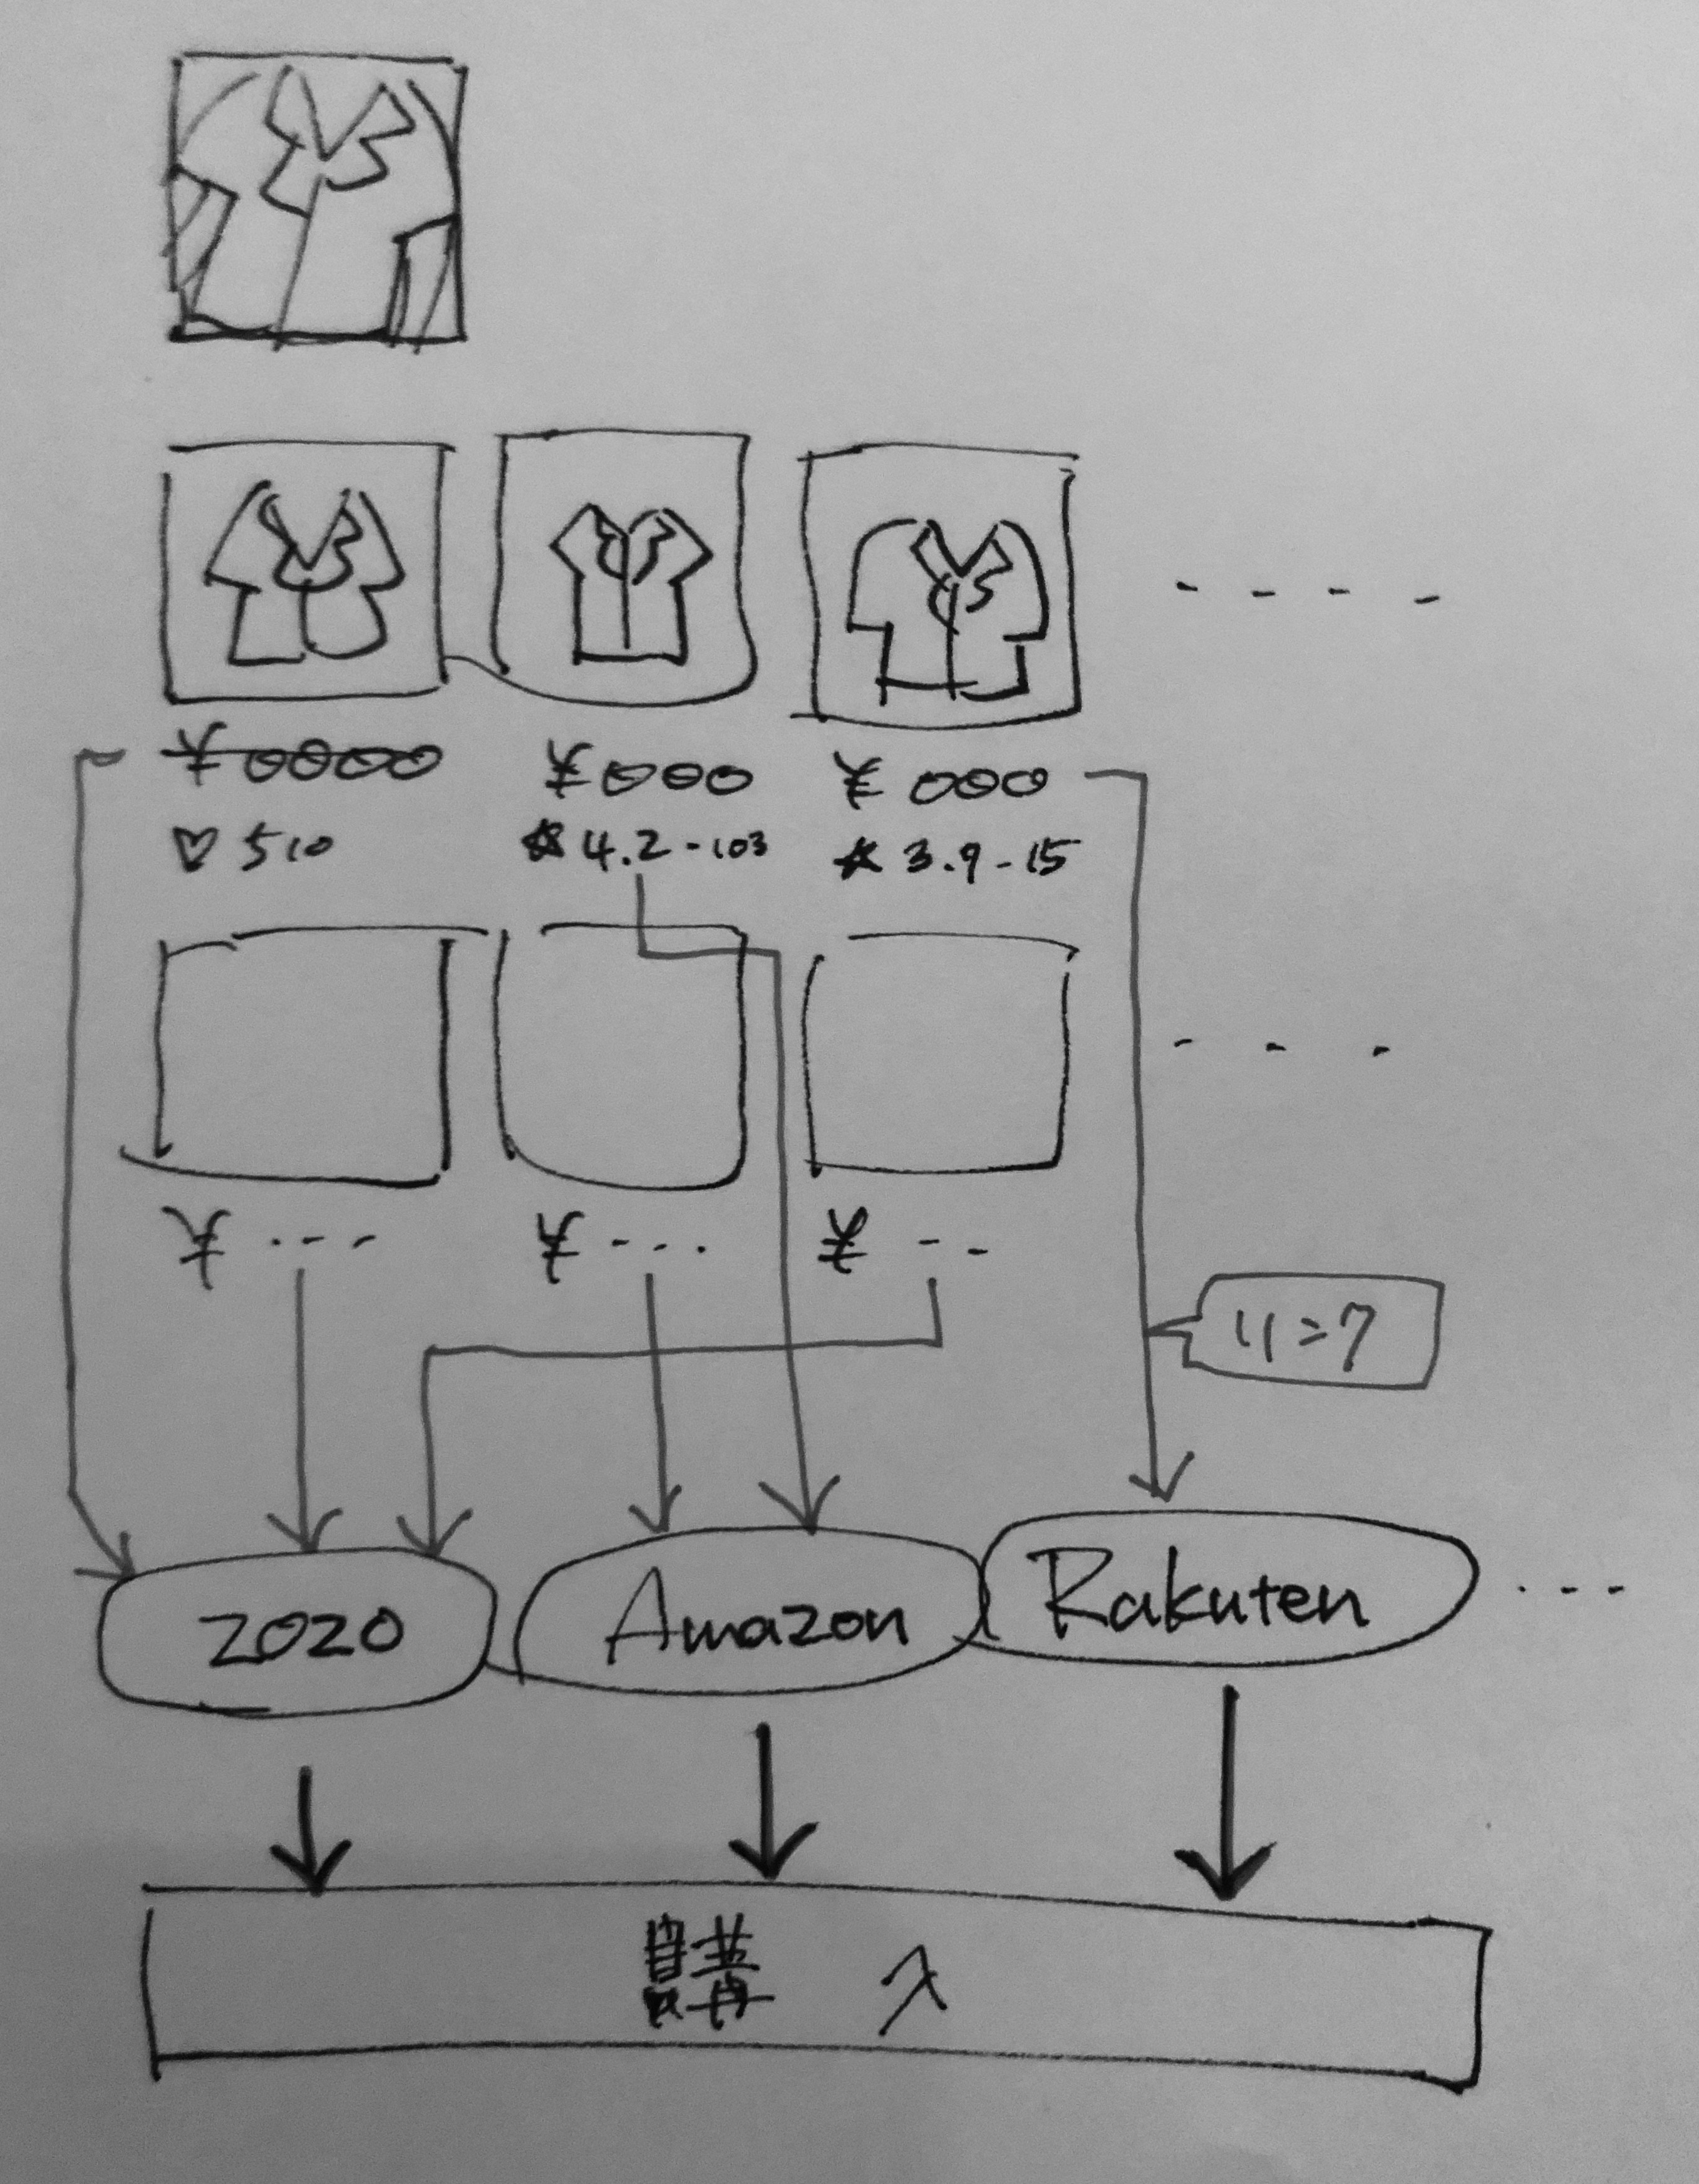 ¥0000 ¥000 ¥000
♡ 510 ☆ 4.2-103 ☆ 3.9-15
¥ --- ¥ --- ¥ --
リンク
ZOZO Amazon Rakuten ---
購入